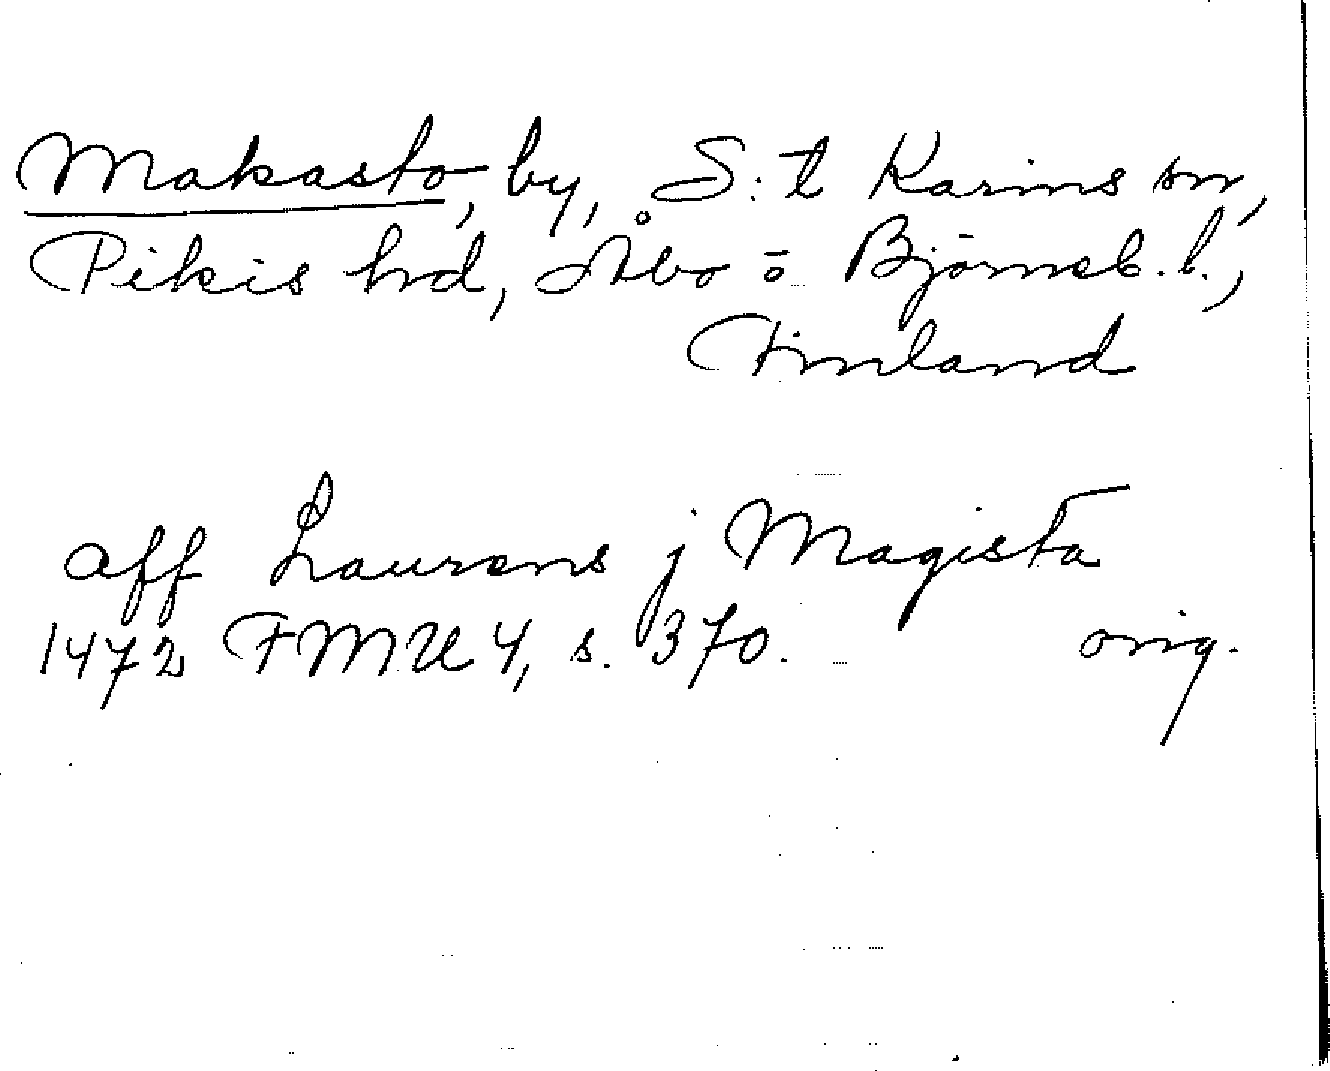 Makasto, by, S:t Karins sn,
Pikis hd, Åbo o Björneb. l.,
Finland
aff Laurens j Magista
1472 FMU 4, s. 370. orig.